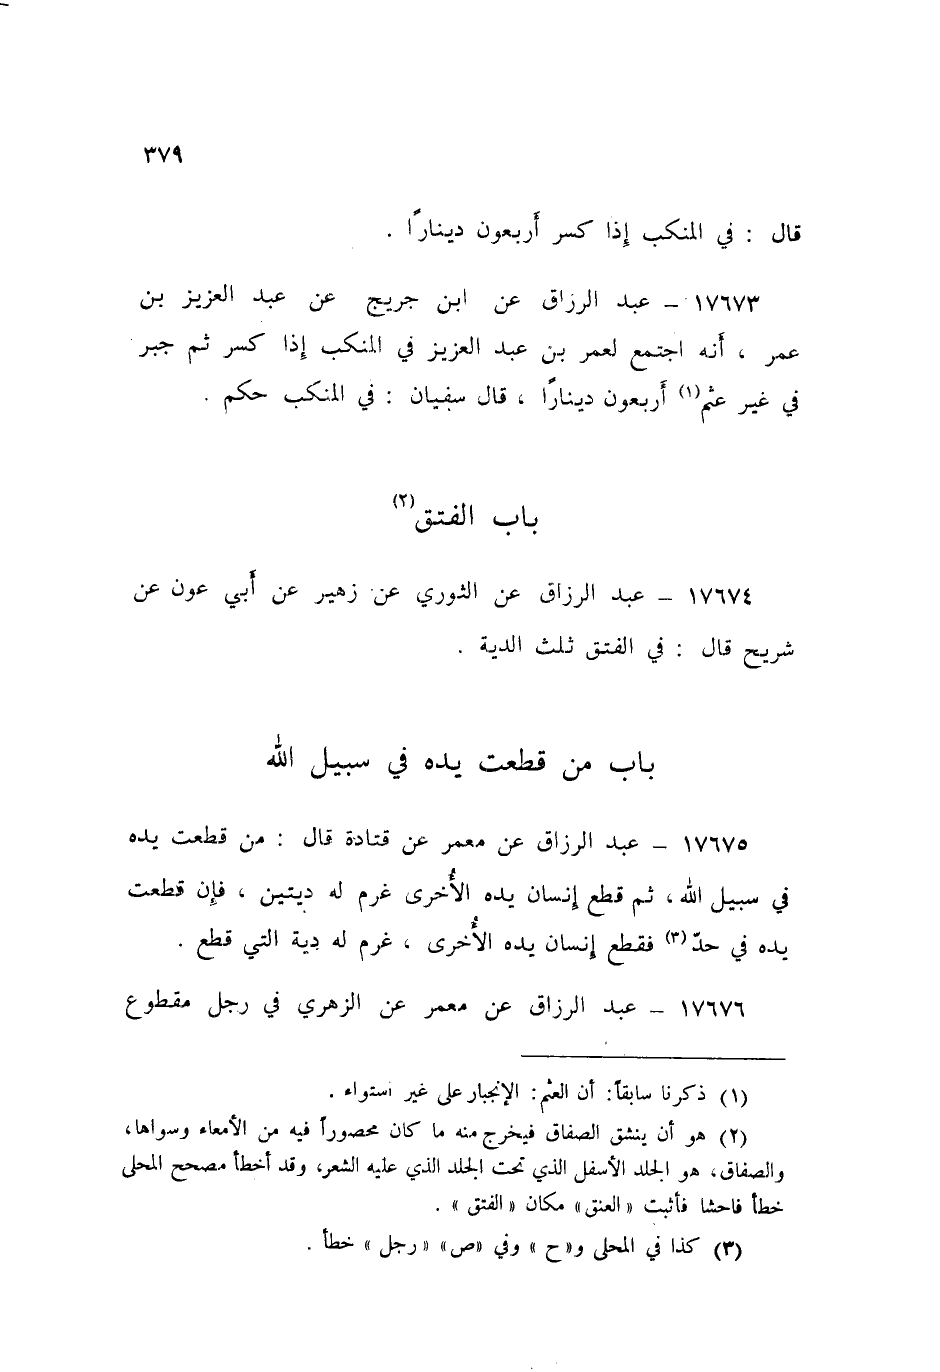 ٣٧٩
قال : في المنكب إذا كسر أربعون دينارًا .
١٧٦٧٣ ـ عبد الرزاق عن ابن جريج عن عبد العزيز بن
عمر ، أنه اجتمع لعمر بن عبد العزيز في المنكب إذا كسر ثم جبر
في غير عثم(١) أربعون دينارًا ، قال سفيان : في المنكب حكم .
باب الفتق(٢)
١٧٦٧٤ ـ عبد الرزاق عن الثوري عن زهير عن أبي عون عن
شريح قال : في الفتق ثلث الدية .
باب من قطعت يده في سبيل الله
١٧٦٧٥ ـ عبد الرزاق عن معمر عن قتادة قال : من قطعت يده
في سبيل الله ، ثم قطع إنسان يده الأُخرى غرم له ديتين ، فإن قطعت
يده في حدّ (٣) فقطع إنسان يده الأُخرى ، غرم له دية التي قطع .
١٧٦٧٦ ـ عبد الرزاق عن معمر عن الزهري في رجل مقطوع
(١) ذكرنا سابقاً : أن العثم : الإنجبار على غير استواء .
(٢) هو أن ينشق الصفاق فيخرج منه ما كان محصوراً فيه من الأمعاء وسواها ،
والصفاق ، هو الجلد الأسفل الذي تحت الجلد الذي عليه الشعر، وقد أخطأ مصحح المحلى
خطأ فاحشا فأثبت « العنق» مكان « الفتق » .
(٣) كذا في المحلى و«ح » وفي «ص» « رجل » خطأ .